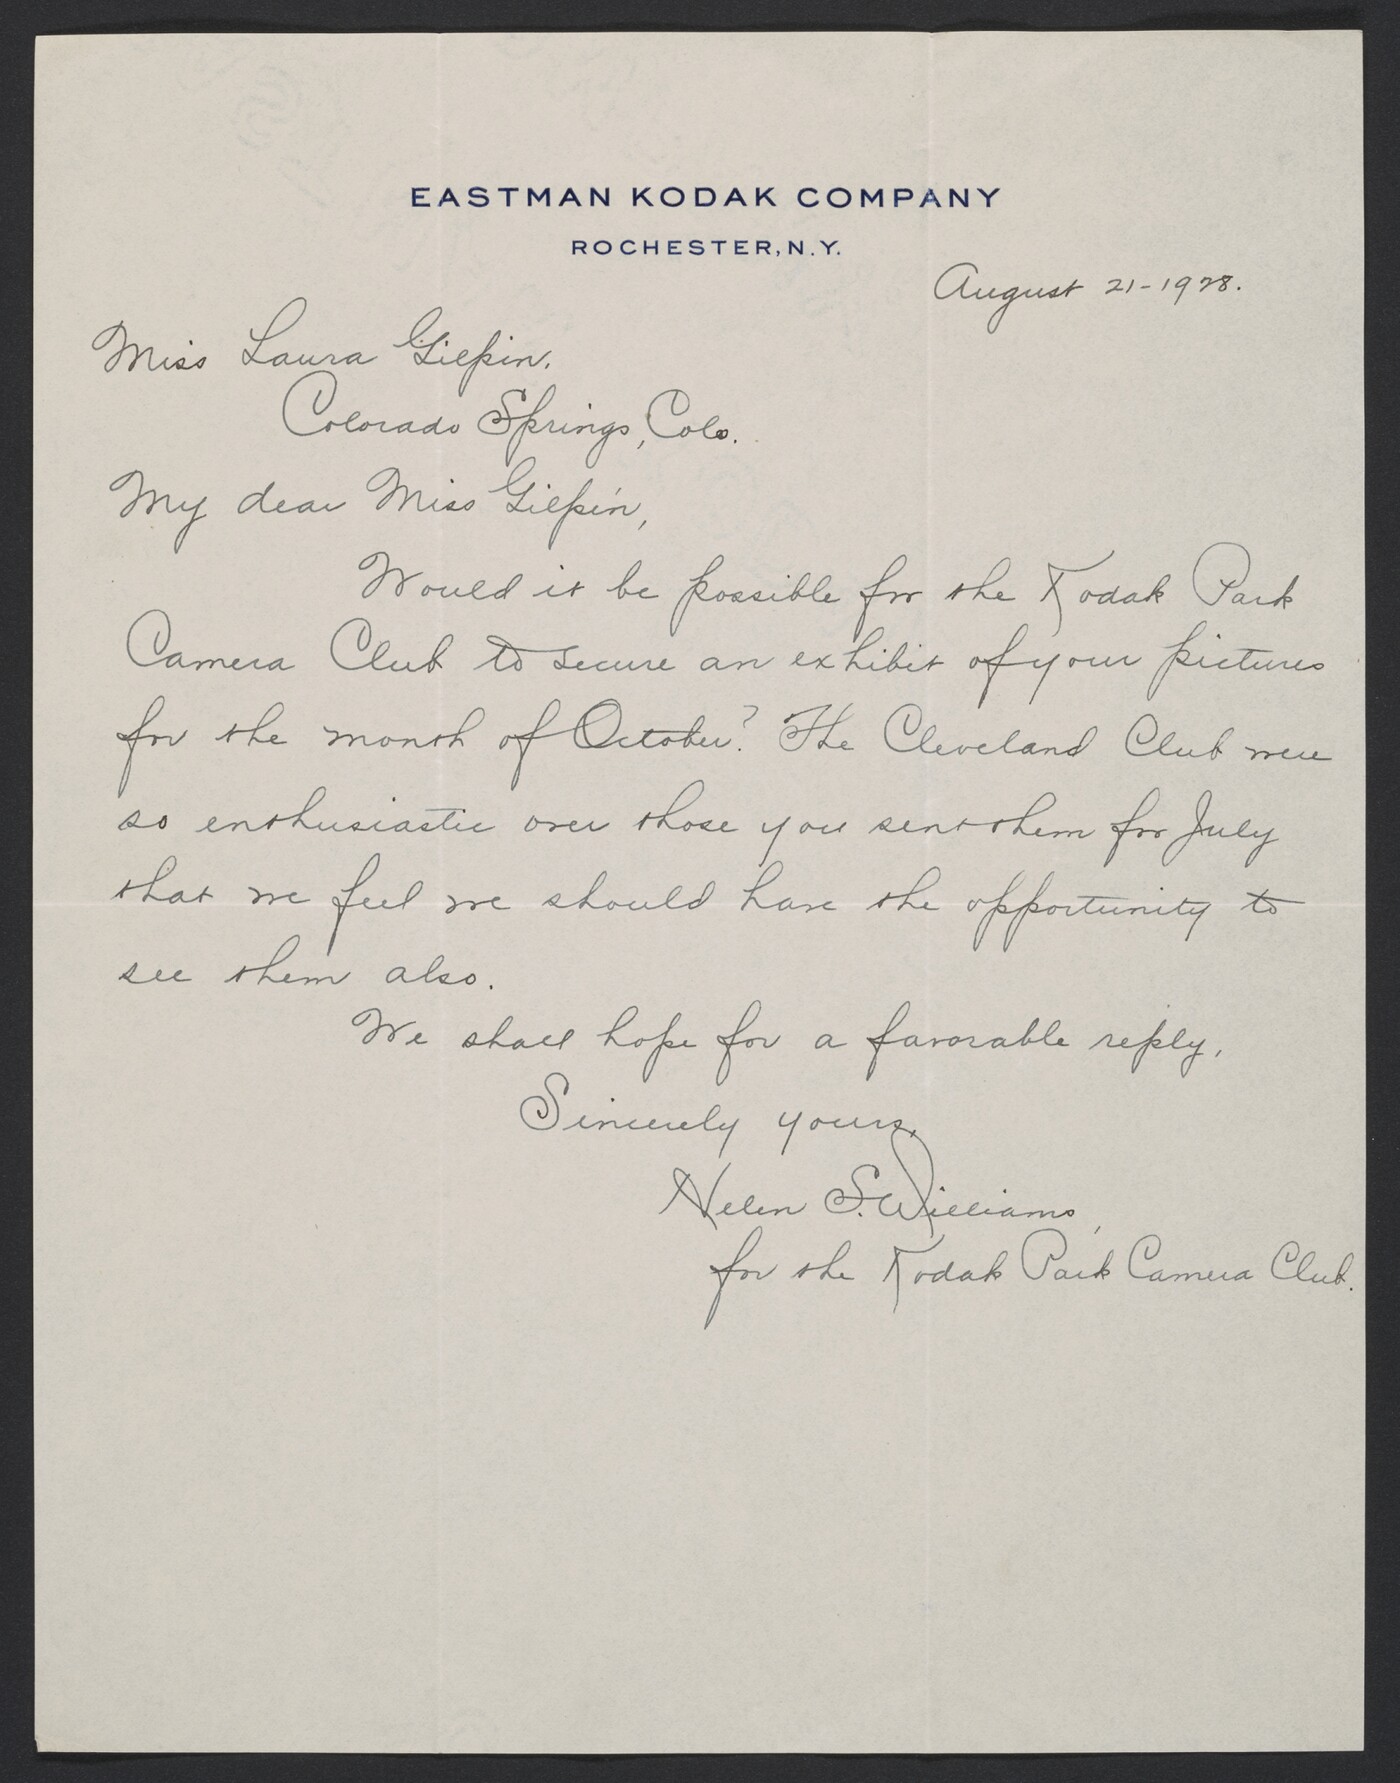 EASTMAN KODAK COMPANY
ROCHESTER, N.Y.
August 21-1928.
Miss Laura Gilpin.
Colorado Springs, Colo.
My dear Miss Gilpin,
Would it be possible for the Kodak Park
Camera Club to secure an exhibit of your pictures
for the month of October? The Cleveland Club were
so enthusiastic over those you sent them for July
that we feel we should have the opportunity to
see them also.
We shall hope for a favorable reply,
Sincerely yours,
Helen S. Williams,
for the Kodak Park Camera Club.